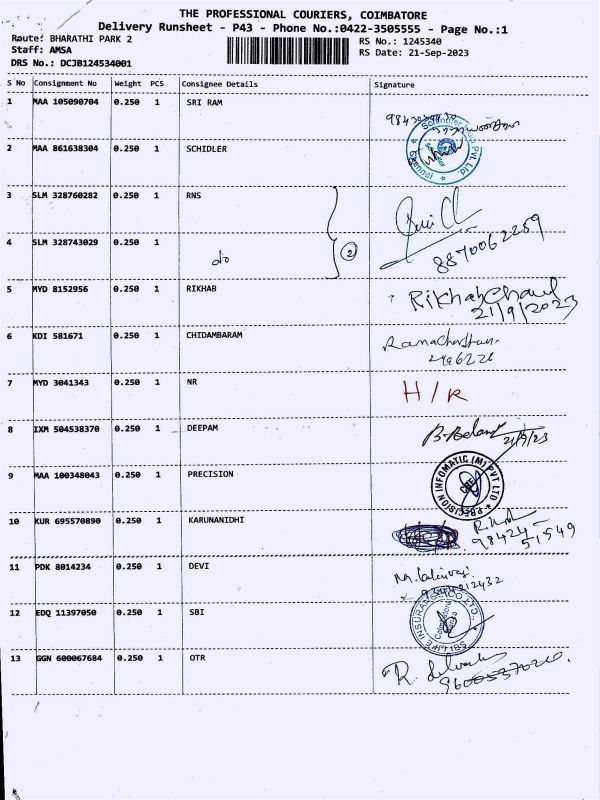 THE PROFESSIONAL COURIERS, COIMBATORE
Delivery Runsheet - P43 - Phone No.:0422-3505555 - Page No.:1
Route: BHARATHI PARK 2
RS No.: 1245340
Staff: AMSA
RS Date: 21-Sep-2023
DRS No.: DCJB124534001
S No Consignment No Weight PCS Consignee Details Signature
1 MAA 105090704 0.250 1 SRI RAM
2 MAA 861638304 0.250 1 SCHIDLER
Chennai
3 SLM 328760282 0.250 1 RNS
4 SLM 328743029 0.250 1 do 2
8870062259
5 MYD 8152956 0.250 1 RIKHAB RikhabChand
21/9/2023
6 KDI 581671 0.250 1 CHIDAMBARAM
7 MYD 3041343 0.250 1 NR H/R
8 IXM 504538370 0.250 1 DEEPAM
21/9/23
9 MAA 100348043 0.250 1 PRECISION
PRECISION INFOMATIC (M) PVT LTD
CBE
10 KUR 695570890 0.250 1 KARUNANIDHI
98424-
51549
11 PDK 8014234 0.250 1 DEVI
12 EDQ 11397050 0.250 1 SBI
SBI LIFE INSURANCE CO.LTD.
13 GGN 600067684 0.250 1 OTR